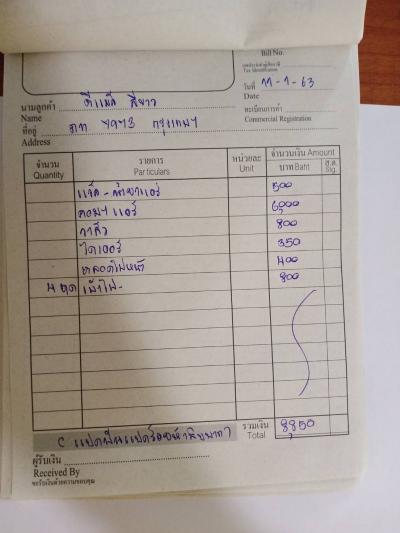 Bill No.
เลขประจำตัวผู้เสียภาษี
Tax Identification
วันที่ 11-1-63
Date
นามลูกค้า ดีแม็ค สีขาว
Name
ทะเบียนการค้า
Commercial Registration
ที่อยู่ 7973 กรุงเทพฯ
Address
จำนวน รายการ หน่วยละ จำนวนเงิน Amount
Quantity Particulars Unit บาท Baht ส.ต. Stg.
แว็ค-น้ำยาแอร์ 500
คอมฯ แอร์ 6,000
วาล์ว 800
ไดเออร์ 350
หลอดไฟหน้า 400
4 ชุด เบ้าไฟ- 800
(แปดพันแปดร้อยห้าสิบบาท) รวมเงิน 8,850
Total
ผู้รับเงิน
Received By
ขอรับเงินด้วยความขอบคุณ